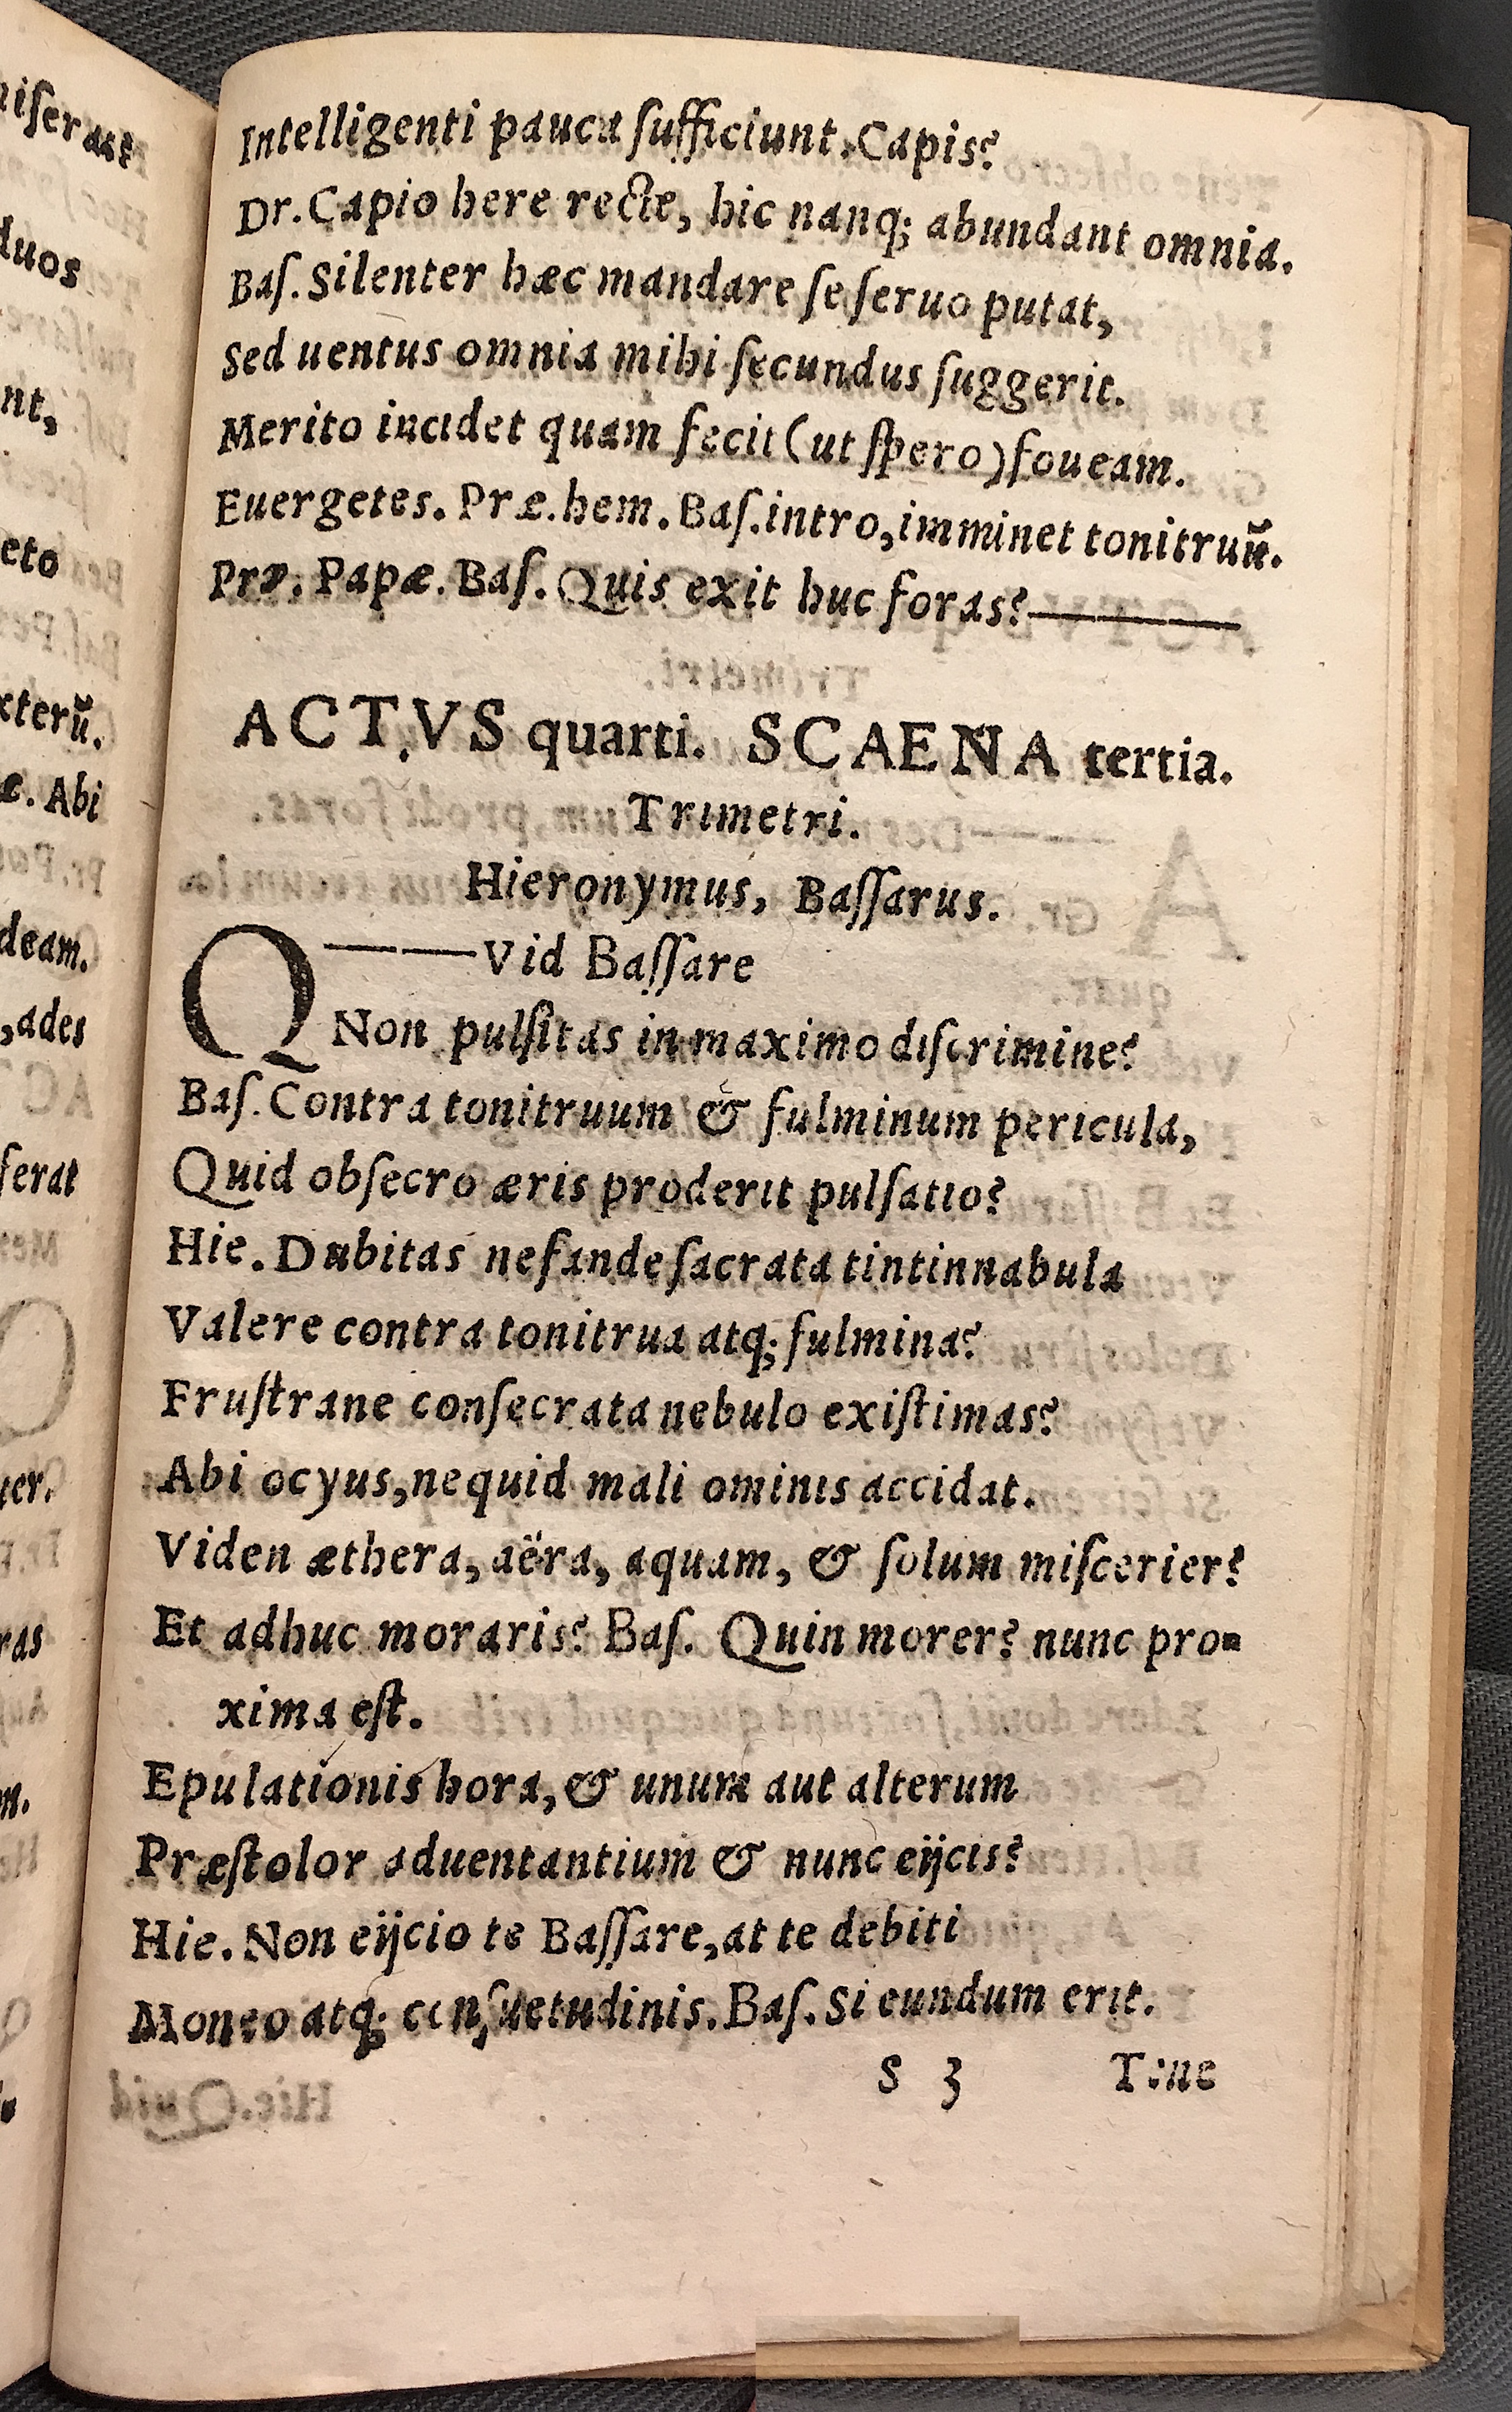 Intelligenti pauca ſufficiunt. Capis?
Dr. Capio here recte, hic nanq; abundant omnia.
Baſ. Silenter hæc mandare ſe ſeruo putat,
Sed uentus omnia mihi ſecundus ſuggerit.
Merito incidet quam fecit (ut ſpero) foueam.
Euergetes. Præ. hem. Baſ. intro, imminet tonitruū.
Præ. Papæ. Baſ. Quis exit huc foras?———
ACTVS quarti. SCAENA tertia.
Trimetri.
Hieronymus, Baſſarus.
Q———Vid Baſſare
Non pulſitas in maximo diſcrimine?
Baſ. Contra tonitruum & fulminum pericula,
Quid obſecro æris proderit pulſatio?
Hie. Dubitas nefande ſacrata tintinnabula
Valere contra tonitrua atq; fulmina?
Fruſtrane conſecrata nebulo exiſtimas?
Abi ocyus, nequid mali ominis accidat.
Viden æthera, aëra, aquam, & ſolum miſcerier?
Et adhuc moraris? Baſ. Quin morer? nunc pro=
xima eſt.
Epulationis hora, & unum aut alterum
Præſtolor aduentantium & nunc eijcis?
Hie. Non eijcio te Baſſare, at te debiti
Moneo atq; conſuetudinis. Baſ. Si eundum erit.
S 3 Tine
iſerat
duos
nt,
eto
xterū.
æ. Abi
deam.
, ades
ferat
uer.
ras
m.